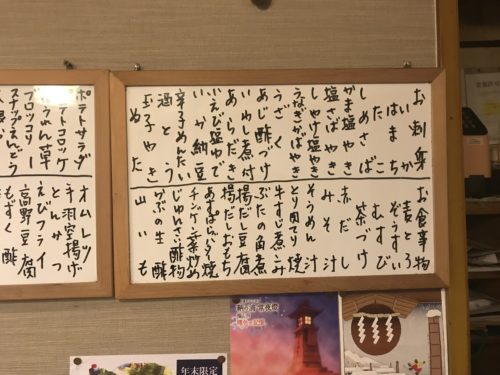 お刺身
いか
はまち
たこ
しめさば
かま塩やき
塩さばやき
しゃけ塩やき
うなぎかばやき
うざく
あじ酢づけ
いわし煮付
あらだき
いえび塩ゆで
いか納豆
辛子めんたい
酒とう
玉子やき
ぬた
お食事物
麦とろ
ぞうすい
むすび
茶づけ
赤だし
みそ汁
そうめん汁
とり団てり焼
牛すじ煮こみ
ぶたの角煮
揚だし豆腐
揚だしおもち
チンゲン菜炒め
あすぱらべーこん焼
じゅんさい酢物
山いも
ポテトサラダ
ポテトコロッケ
ほうれん草
ブロッコリー
スナップえんどう
オムレツ
とんかつ
手羽空揚げ
えびフライ
高野豆腐
もずく酢
年末限定